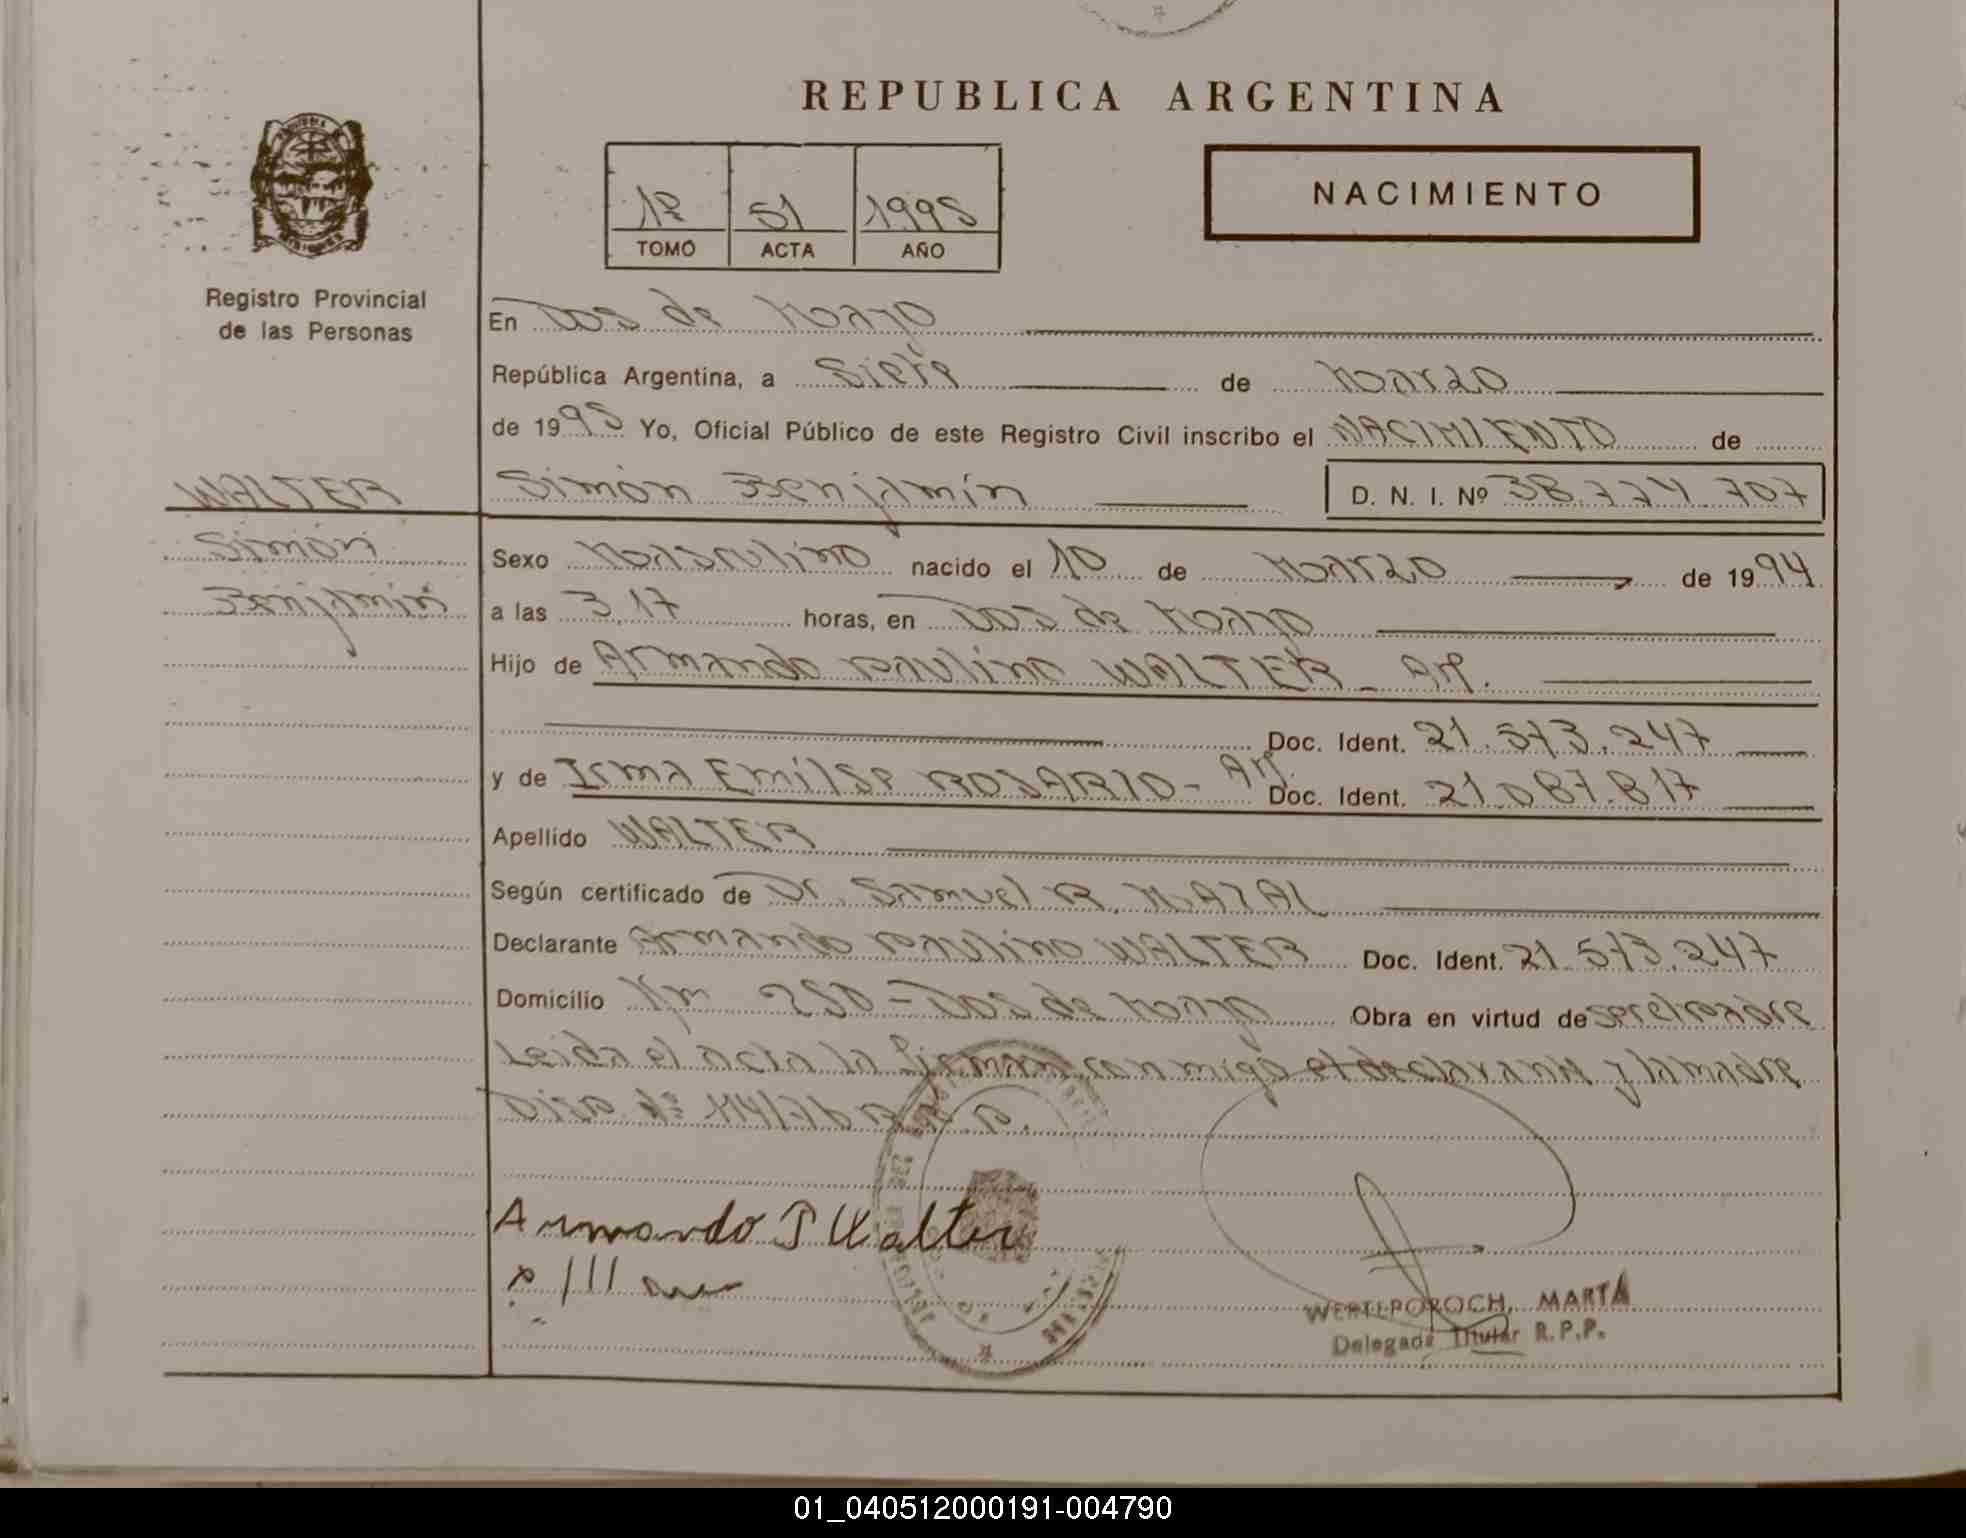 REPUBLICA ARGENTINA
NACIMIENTO
1º 51 1995
TOMO ACTA AÑO
Registro Provincial
de las Personas
En Dos de Mayo
República Argentina, a Siete de Marzo
de 1995 Yo, Oficial Público de este Registro Civil inscribo el NACIMIENTO de
WALTER
Simón
Benjamín
Simón Benjamín D. N. I. Nº 38.774.707
Sexo Masculino nacido el 10 de Marzo de 1994
a las 3,17 horas, en Dos de Mayo
Hijo de Armando Paulino WALTER - Arg.
Doc. Ident. 21.573.247
y de Irma Emilse ROSARIO - Arg. Doc. Ident. 21.087.817
Apellido WALTER
Según certificado de Dr. Samuel R. MAZAL
Declarante Armando Paulino WALTER Doc. Ident. 21.573.247
Domicilio Km 250 - Dos de Mayo Obra en virtud de ser el padre
Leida el acta la firman conmigo el declarante y la madre
Armando P Walter
WERTLPOROCH, MARTA
Delegada Titular R.P.P.
01_040512000191-004790